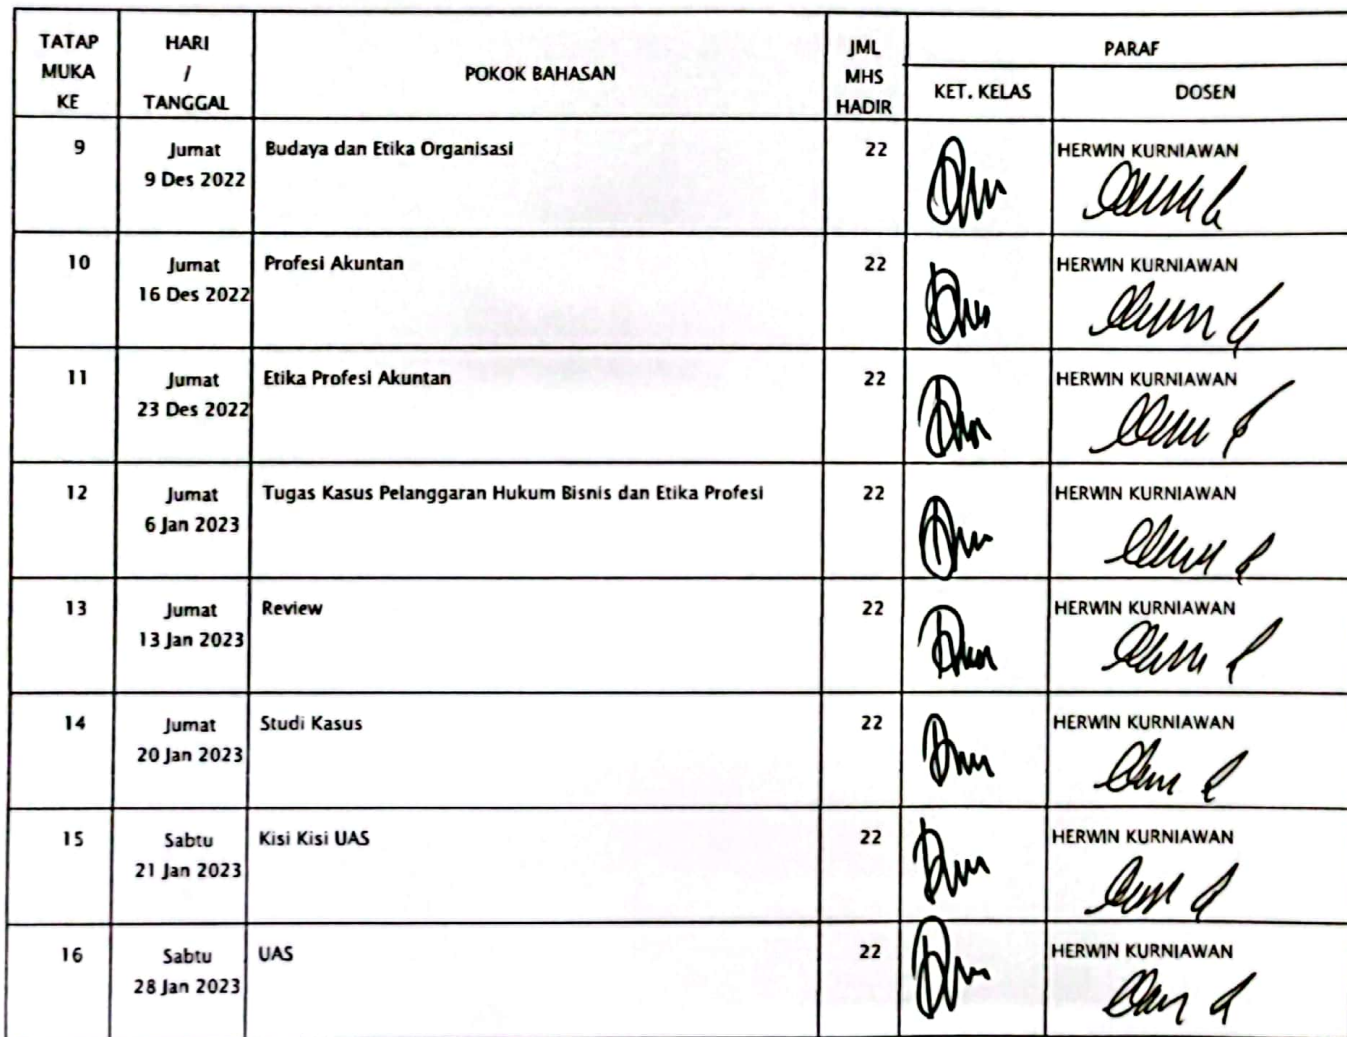 TATAP MUKA KE
HARI / TANGGAL
POKOK BAHASAN
JML MHS HADIR
PARAF
KET. KELAS
DOSEN
9
Jumat
9 Des 2022
Budaya dan Etika Organisasi
22
HERWIN KURNIAWAN
10
Jumat
16 Des 2022
Profesi Akuntan
22
HERWIN KURNIAWAN
11
Jumat
23 Des 2022
Etika Profesi Akuntan
22
HERWIN KURNIAWAN
12
Jumat
6 Jan 2023
Tugas Kasus Pelanggaran Hukum Bisnis dan Etika Profesi
22
HERWIN KURNIAWAN
13
Jumat
13 Jan 2023
Review
22
HERWIN KURNIAWAN
14
Jumat
20 Jan 2023
Studi Kasus
22
HERWIN KURNIAWAN
15
Sabtu
21 Jan 2023
Kisi Kisi UAS
22
HERWIN KURNIAWAN
16
Sabtu
28 Jan 2023
UAS
22
HERWIN KURNIAWAN